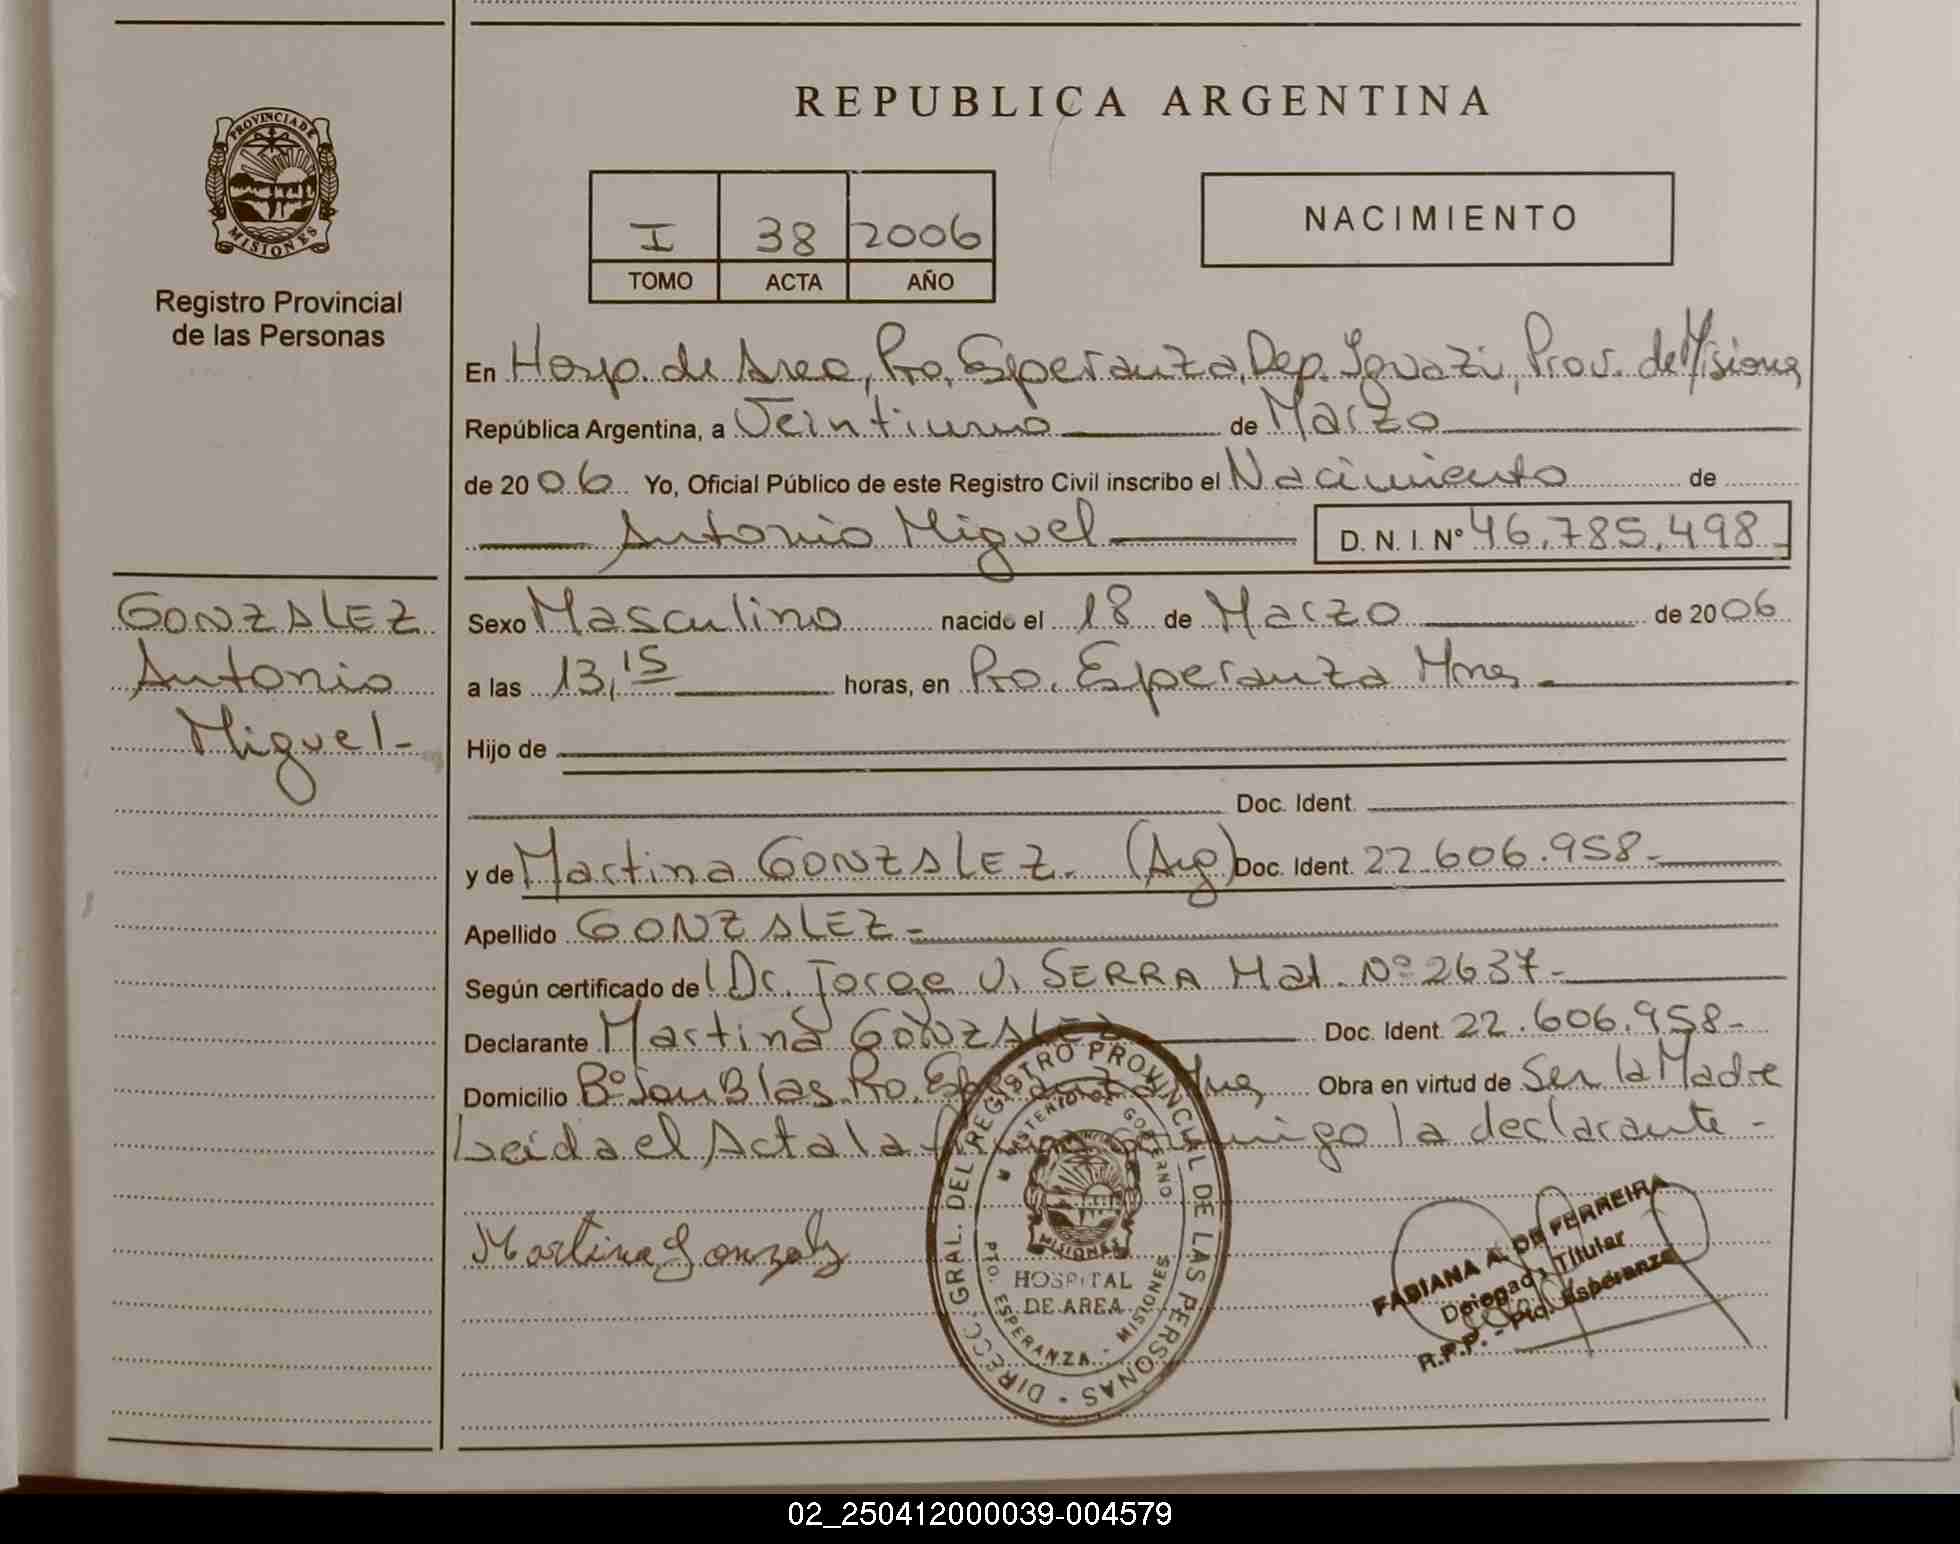 PROVINCIA DE
MISIONES
Registro Provincial
de las Personas
REPUBLICA ARGENTINA
I 38 2006
TOMO ACTA AÑO
NACIMIENTO
En Hosp. de Area, Pto. Esperanza, Dep. Iguazú, Prov. de Misiones
República Argentina, a Veintiuno de Marzo
de 2006 Yo, Oficial Público de este Registro Civil inscribo el Nacimiento de
Antonio Miguel D.N.I. Nº 46.785.498
GONZALEZ
Antonio
Miguel-
Sexo Masculino nacido el 18 de Marzo de 2006
a las 13,15 horas, en Pto. Esperanza Mnes
Hijo de
Doc. Ident.
y de Martina GONZALEZ. (Arg) Doc. Ident. 22.606.958-
Apellido GONZALEZ-
Según certificado de Dr. Jorge V. SERRA Mat. Nº 2637-
Declarante Martina GONZALEZ Doc. Ident. 22.606.958-
Domicilio Bº San Blas Pto. Esperanza Mnes Obra en virtud de Ser la Madre
Leida el Acta la firma conmigo la declarante-
Martina Gonzalez
DIRECC. GRAL. DEL REGISTRO PROVINCIAL DE LAS PERSONAS -
MINISTERIO DE GOBIERNO
MISIONES
HOSPITAL
DE AREA
PTO. ESPERANZA - MISIONES
FABIANA A. DE FERREIRA
Delegada Titular
R.P.P. - Pto. Esperanza
02_250412000039-004579